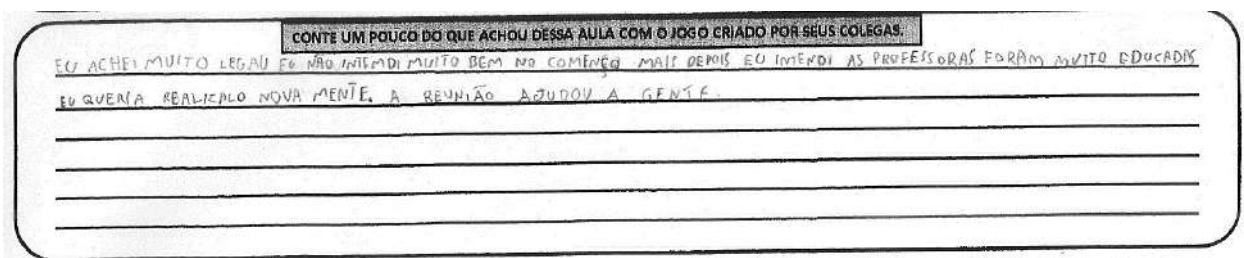 CONTE UM POUCO DO QUE ACHOU DESSA AULA COM O JOGO CRIADO POR SEUS COLEGAS.
EU ACHEI MUITO LEGAU EU NÃO INTENDI MUITO BEM NO COMENÇO MAIS DEPOIS EU INTENDI AS PROFESSORAS FORAM MUITO EDUCADAS
EU QUERIA REALIZALO NOVA MENTE. A REUNIÃO AJUDOU A GENTE.